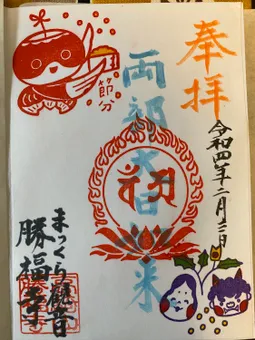 奉拝
令和四年二月三日
両部大日如来
節分
まっくら観音
勝福寺